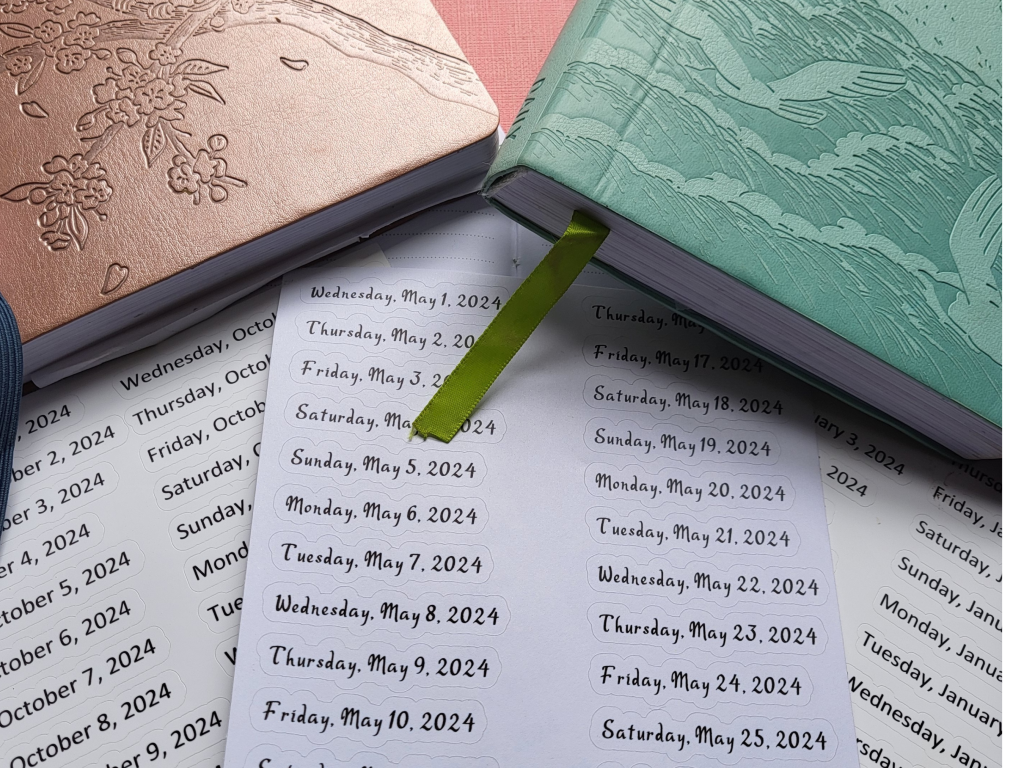 Wednesday, May 1, 2024
Thursday, May 2, 20
Friday, May 3, 2
Saturday, Ma 024
Sunday, May 5, 2024
Monday, May 6, 2024
Tuesday, May 7, 2024
Wednesday, May 8, 2024
Thursday, May 9, 2024
Friday, May 10, 2024
Thursday, May
Friday, May 17, 2024
Saturday, May 18, 2024
Sunday, May 19, 2024
Monday, May 20, 2024
Tuesday, May 21, 2024
Wednesday, May 22, 2024
Thursday, May 23, 2024
Friday, May 24, 2024
Saturday, May 25, 2024
, 2024
ber 2, 2024
ber 3, 2024
er 4, 2024
ctober 5, 2024
tober 6, 2024
October 7, 2024
October 8, 2024
ber 9, 2024
Wednesday, Octo
Thursday, Octob
Friday, October
Saturday, O
Sunday,
Mond
Tue
ary 3, 2024
2024
Thursd
Friday, Ja
Saturday, J
Sunday, Janu
Monday, Janua
Tuesday, January
Wednesday, Janu
rsday